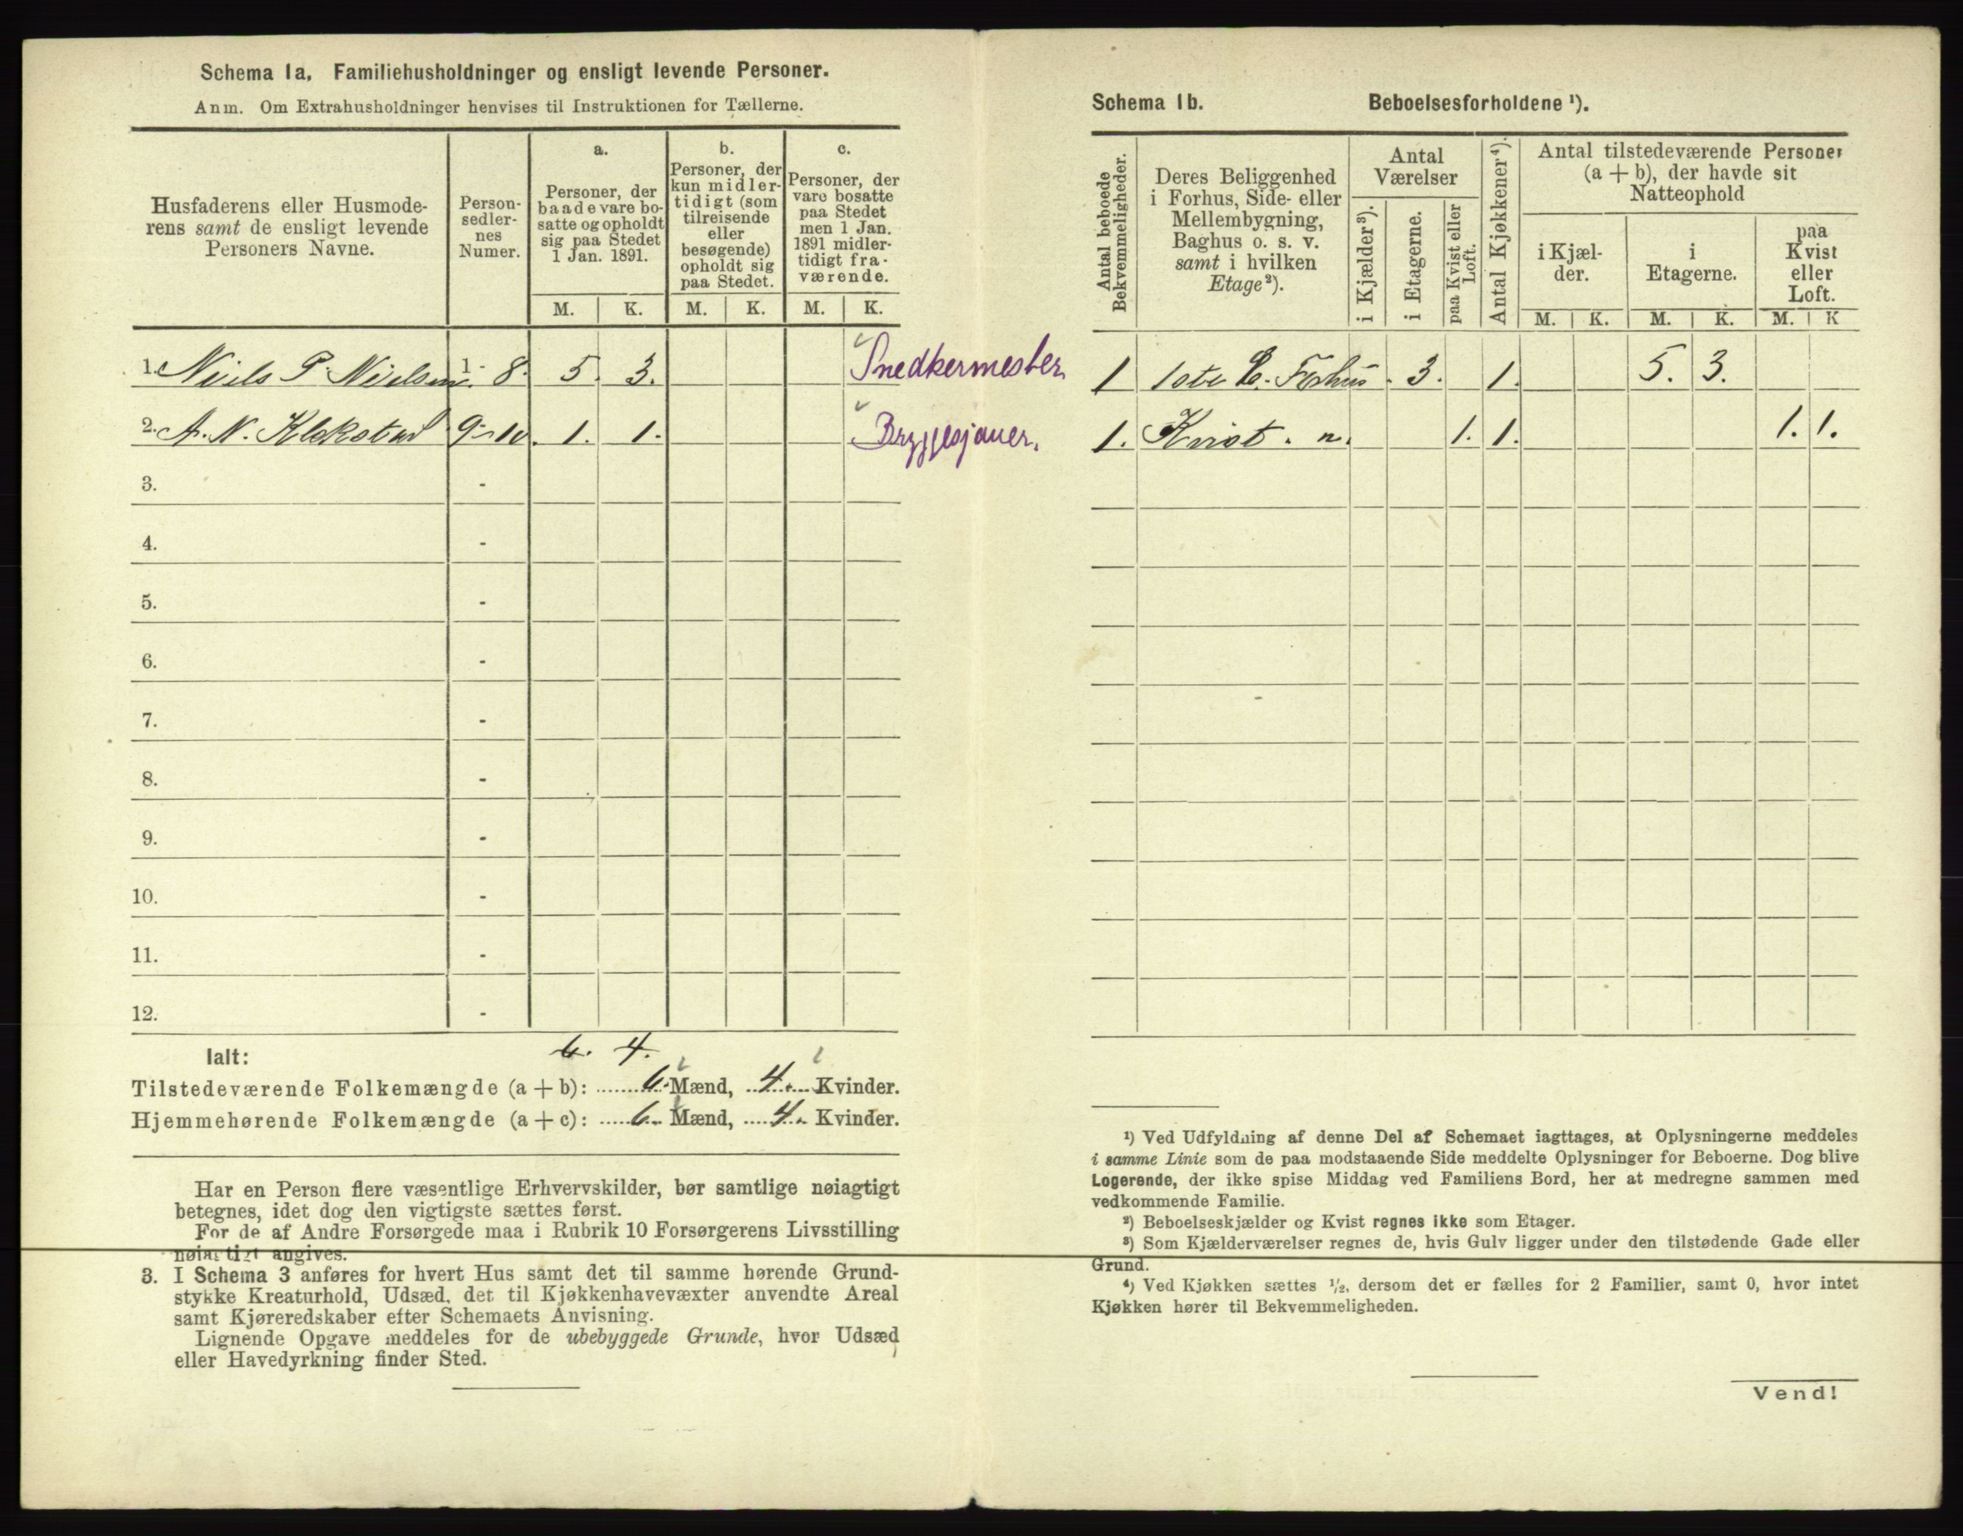 Schema 1a. Familiehusholdninger og ensligt levende Personer.
Anm. Om Extrahusholdninger henvises til Instruktionen for Tællerne.
Husfaderens eller Husmode-
rens samt de ensligt levende
Personers Navne.
Person-
sedler-
nes
Numer.
a.
Personer, der
baade vare bo-
satte og opholdt
sig paa Stedet
1 Jan. 1891.
b.
Personer, der
kun midler-
tidigt (som
tilreisende
eller
besøgende)
opholdt sig
paa Stedet.
c.
Personer, der
vare bosatte
paa Stedet
men 1 Jan.
1891 midler-
tidigt fra-
værende.
M. K. M. K. M. K.
1. Niels P. Nielsen 1 - 8. 5. 3. Snedkermester
2. A. N. Klekstad 9 - 10. 1. 1. Bryggesjauer.
3. -
4. -
5. -
6. -
7. -
8. -
9. -
10. -
11. -
12. -
Ialt: 6. 4.
Tilstedeværende Folkemængde (a + b): 6. Mænd, 4. Kvinder.
Hjemmehørende Folkemængde (a + c): 6. Mænd, 4. Kvinder.
Har en Person flere væsentlige Erhvervskilder, bør samtlige nøiagtigt
betegnes, idet dog den vigtigste sættes først.
For de af Andre Forsørgede maa i Rubrik 10 Forsørgerens Livsstilling
nøiagtigt angives.
3. I Schema 3 anføres for hvert Hus samt det til samme hørende Grund-
stykke Kreaturhold, Udsæd, det til Kjøkkenhavevæxter anvendte Areal
samt Kjøreredskaber efter Schemaets Anvisning.
Lignende Opgave meddeles for de ubebyggede Grunde, hvor Udsæd
eller Havedyrkning finder Sted.
Schema 1b. Beboelsesforholdene ¹).
Antal beboede
Bekvemmeligheder.
Deres Beliggenhed
i Forhus, Side- eller
Mellembygning,
Baghus o. s. v.
samt i hvilken
Etage²).
Antal
Værelser
i Kjælder³).
i Etagerne.
paa Kvist eller
Loft.
Antal Kjøkkener⁴).
Antal tilstedeværende Personer
(a + b), der havde sit
Natteophold
i Kjæl-
der.
i
Etagerne.
paa
Kvist
eller
Loft.
M. K. M. K. M. K
1 1ste E. Forhus. 3. 1. 5. 3.
1. Kvist. n. 1. 1. 1. 1.
¹) Ved Udfyldning af denne Del af Schemaet iagttages, at Oplysningerne meddeles
i samme Linie som de paa modstaaende Side meddelte Oplysninger for Beboerne. Dog blive
Logerende, der ikke spise Middag ved Familiens Bord, her at medregne sammen med
vedkommende Familie.
²) Beboelseskjælder og Kvist regnes ikke som Etager.
³) Som Kjælderværelser regnes de, hvis Gulv ligger under den tilstødende Gade eller
Grund.
⁴) Ved Kjøkken sættes ½, dersom det er fælles for 2 Familier, samt 0, hvor intet
Kjøkken hører til Bekvemmeligheden.
Vend!